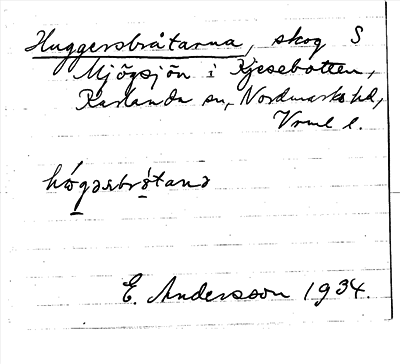 Huggersbråtarna, skog S
Mjögsjön i Kjesebotten,
Karlanda sn, Nordmarks hd,
Vrml l.
hǿgərsbrǿtanə
E. Andersson 1934.